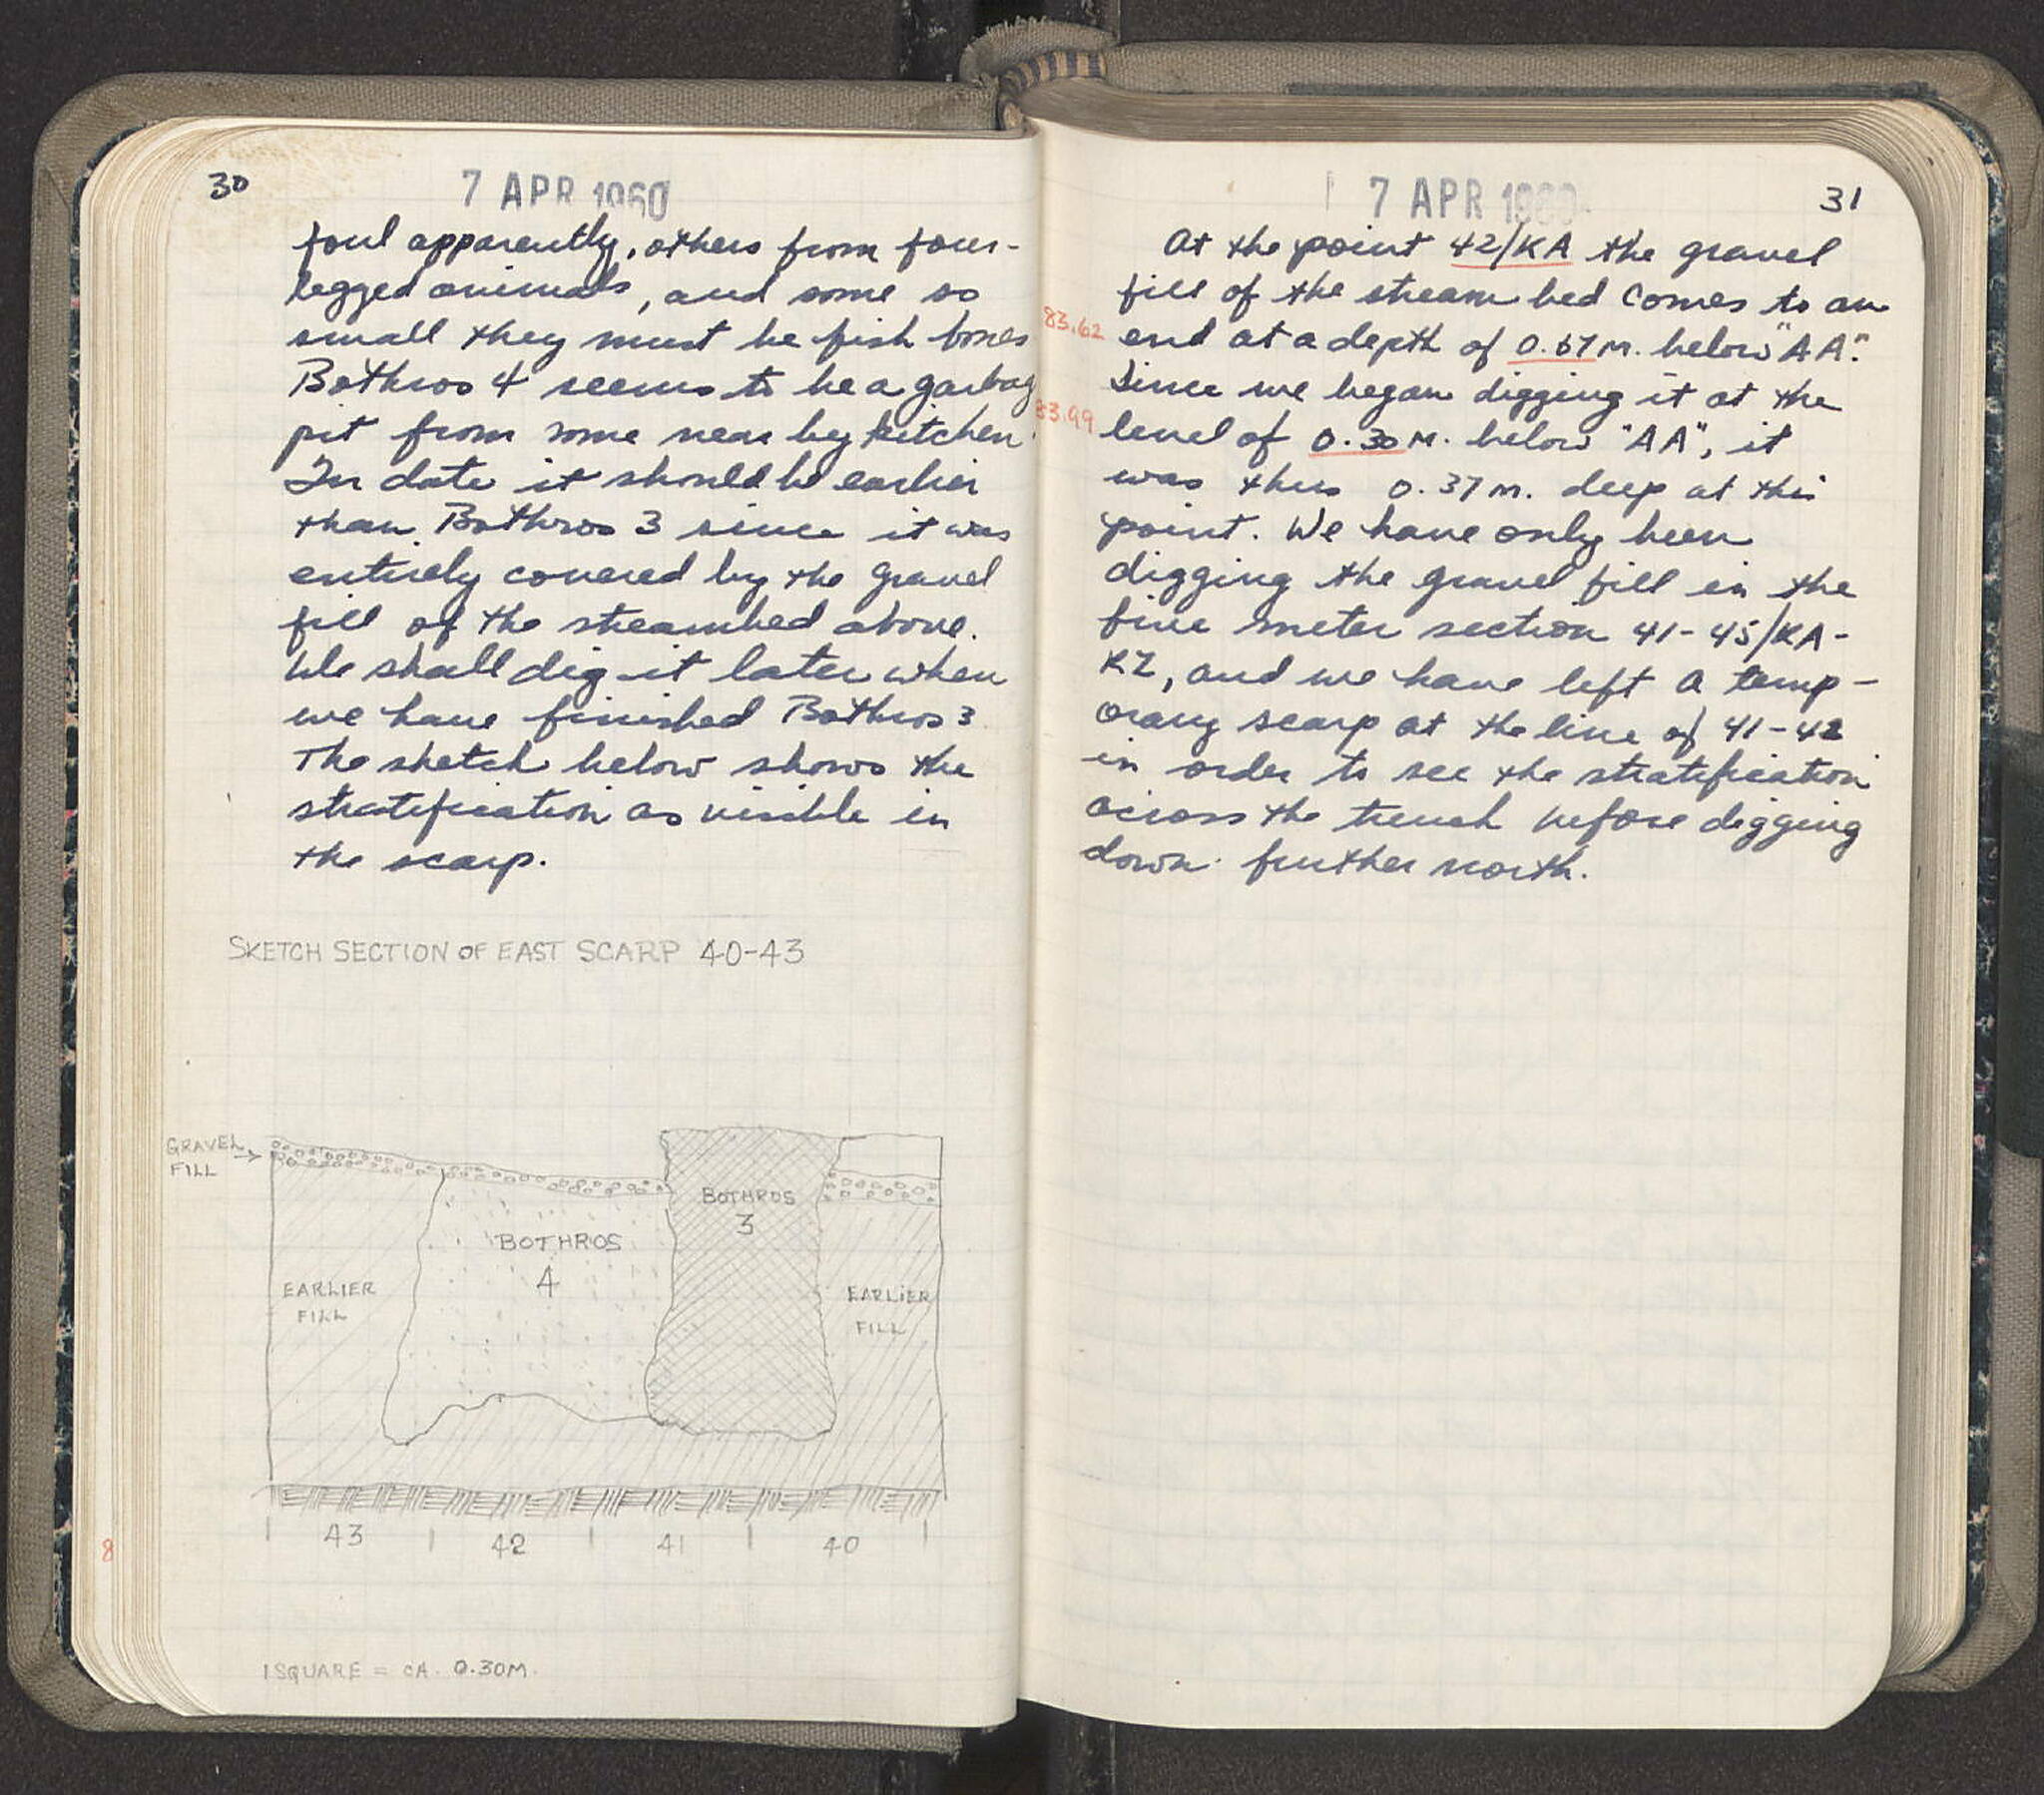 30
7 APR 1960
foul apparently, others from four-
legged animals, and some so
small they must be fish bones
Bothros 4 seems to be a garbag
pit from some near by kitchen.
In date it should be earlier
than Bothros 3 since it was
entirely covered by the gravel
fill of the streambed above.
We shall dig it later when
we have finished Bothros 3
The sketch below shows the
stratification as visible in
the scarp.
SKETCH SECTION OF EAST SCARP 40-43
GRAVEL
FILL
BOTHROS
3
BOTHROS
4
EARLIER
FILL
EARLIER
FILL
43
42
41
40
8
1 SQUARE = CA. 0.30M.
7 APR 1960
31
At the point 42/KA the gravel
fill of the stream bed comes to an
83.62 end at a depth of 0.67 M. below "AA".
Since we began digging it at the
83.99 level of 0.30 M. below "AA", it
was thus 0.37 m. deep at this
point. We have only been
digging the gravel fill in the
five meter section 41-45/KA-
KZ, and we have left a temp-
orary scarp at the line of 41-42
in order to see the stratification
across the trench before digging
down further north.